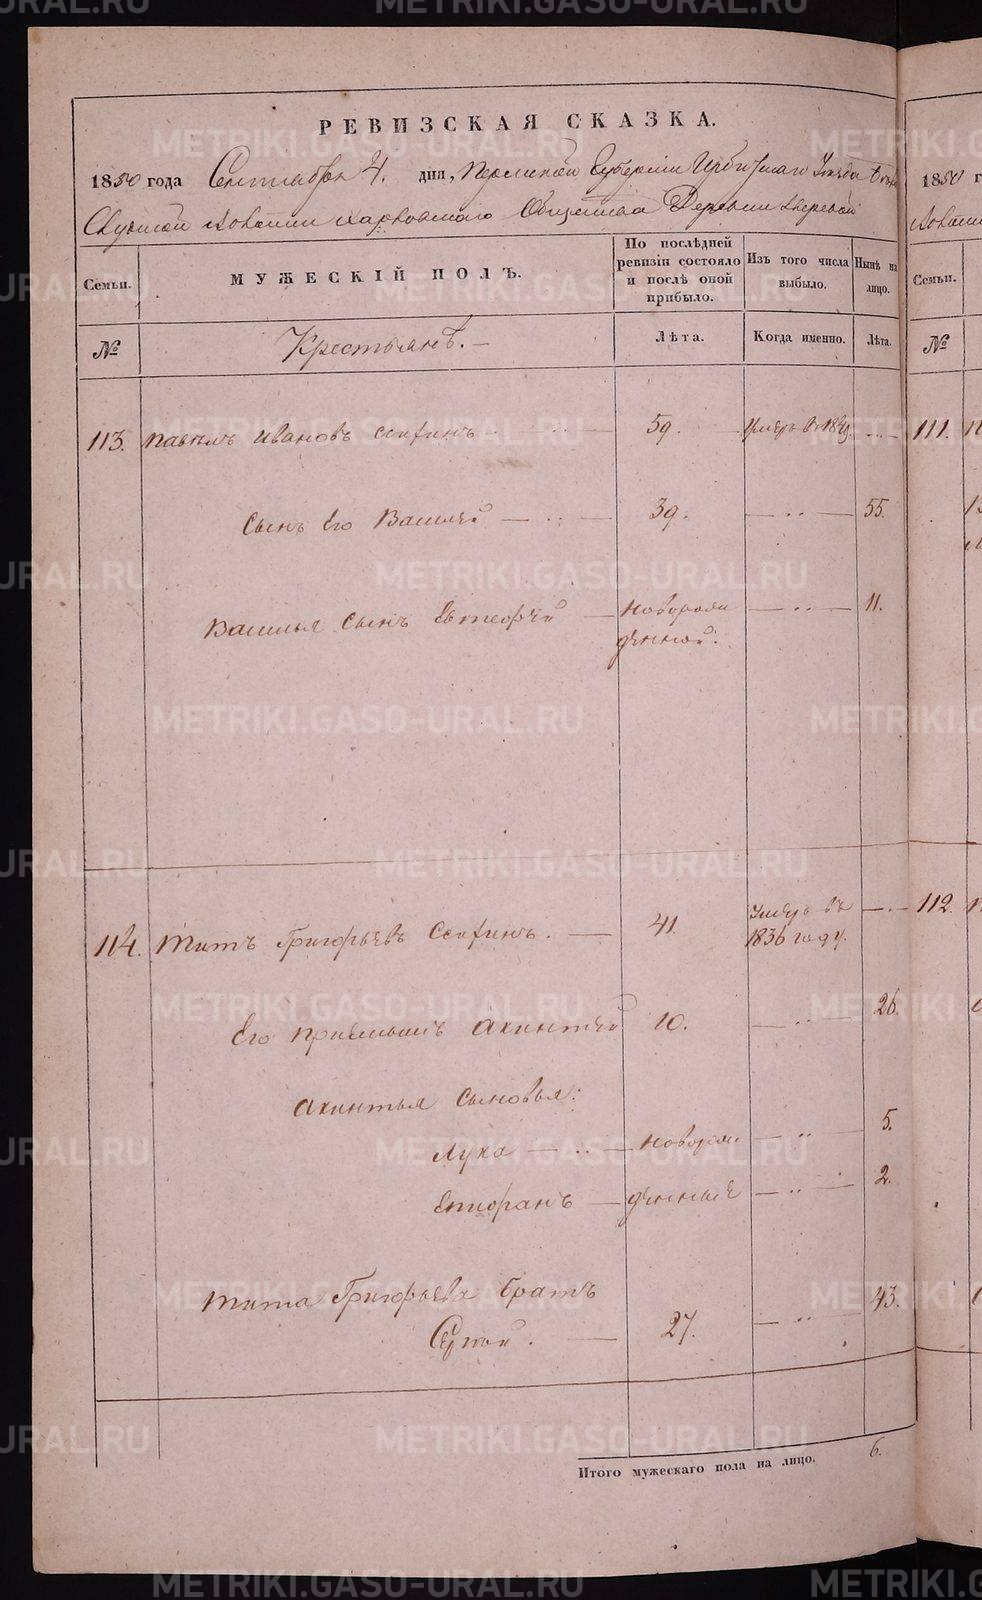 РЕВИЗСКАЯ СКАЗКА.
1850 года Сентября 4. дня, Пермской Губернии Ирбитскаго Уезда
волости Харловскаго Общества Деревни
Семьи. МУЖЕСКІЙ ПОЛЪ. По послѣдней ревизіи состояло и послѣ оной прибыло. Изъ того числа выбыло. Нынѣ на лицо.
№ Крестьянъ. — Лѣта. Когда именно. Лѣта.
113. Павелъ Ивановъ — 59. Умеръ въ — ..
Сынъ его Василей — .. — 39. — .. — 55.
Василья сынъ Евтеофей — новорож
денной. — .. — 11.
114. Титъ Григорьевъ — 41. Умеръ въ
1836 году. — .. —
Его приемышъ Акинтей 10. — .. — 26.
Акинтья сыновья:
Лука — .. — новорож — .. — 5.
— денные — .. — 2.
Тита Григорьева братъ
Сергей. — 27. — .. — 43.
Итого мужескаго пола на лицо. 6.
1850 г
Семьи.
№
111.
112.
METRIKI.GASO-URAL.RU